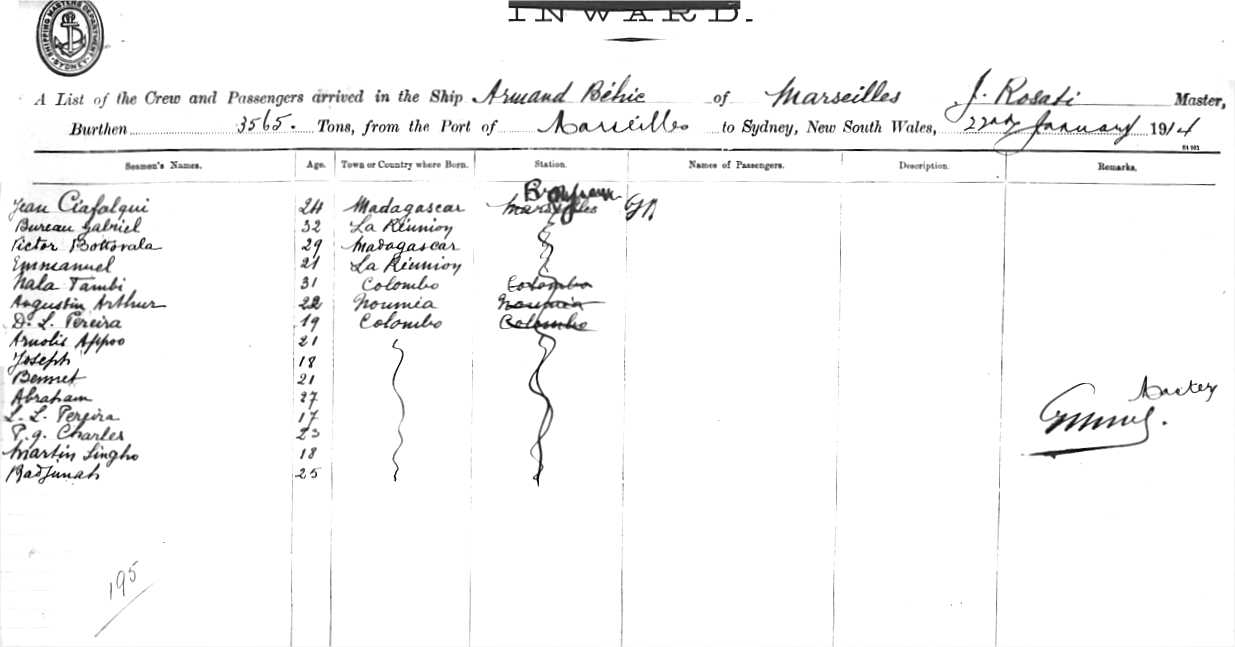 SHIPPING MASTERS DEPARTMENT
SYDNEY
INWARD.
A List of the Crew and Passengers arrived in the Ship Armand Béhic of Marseilles J. Rosati Master,
Burthen 3565. Tons, from the Port of Marseilles to Sydney, New South Wales, 22nd January 1914
Seamen's Names. Age. Town or Country where Born. Station. Names of Passengers. Description. Remarks.
Jean Ciafalqui 24 Madagascar Marseilles
Bureau Gabriel 32 La Réunion
Victor Bottovala 29 Madagascar
Emmanuel 21 La Réunion
Nala Tambi 31 Colombo Colombo
Augustin Arthur 22 Nouméa Nouméa
D. L. Pereira 19 Colombo Colombo
Arnolis Appoo 21
Joseph 18
Bennet 21
Abraham 27
L. L. Pereira 17
P. g. Charles 23
Martin Singho 18
Radjunah 25
Master
195